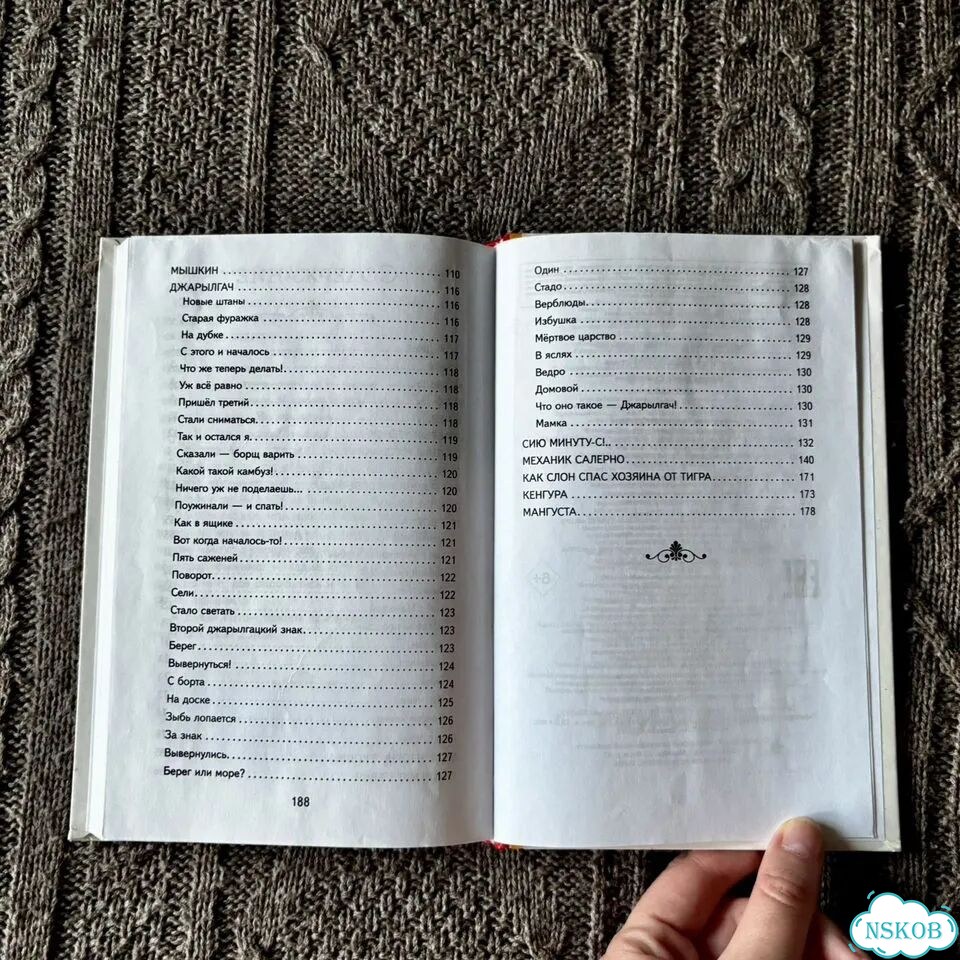 МЫШКИН ........ 110
ДЖАРЫЛГАЧ ........ 116
Новые штаны ........ 116
Старая фуражка ........ 116
На дубке ........ 117
С этого и началось ........ 117
Что же теперь делать! ........ 118
Уж всё равно ........ 118
Пришёл третий ........ 118
Стали сниматься ........ 118
Так и остался я ........ 119
Сказали — борщ варить ........ 119
Какой такой камбуз! ........ 120
Ничего уж не поделаешь... ........ 120
Поужинали — и спать! ........ 120
Как в ящике ........ 121
Вот когда началось-то! ........ 121
Пять саженей ........ 121
Поворот ........ 122
Сели ........ 122
Стало светать ........ 123
Второй джарылгацкий знак ........ 123
Берег ........ 123
Вывернуться! ........ 124
С борта ........ 124
На доске ........ 125
Зыбь лопается ........ 126
За знак ........ 126
Вывернулись ........ 127
Берег или море? ........ 127
188
Один ........ 127
Стадо ........ 128
Верблюды ........ 128
Избушка ........ 128
Мёртвое царство ........ 129
В яслях ........ 129
Ведро ........ 130
Домовой ........ 130
Что оно такое — Джарылгач! ........ 130
Мамка ........ 131
СИЮ МИНУТУ-С!.. ........ 132
МЕХАНИК САЛЕРНО ........ 140
КАК СЛОН СПАС ХОЗЯИНА ОТ ТИГРА ........ 171
КЕНГУРА ........ 173
МАНГУСТА ........ 178
NSKOB